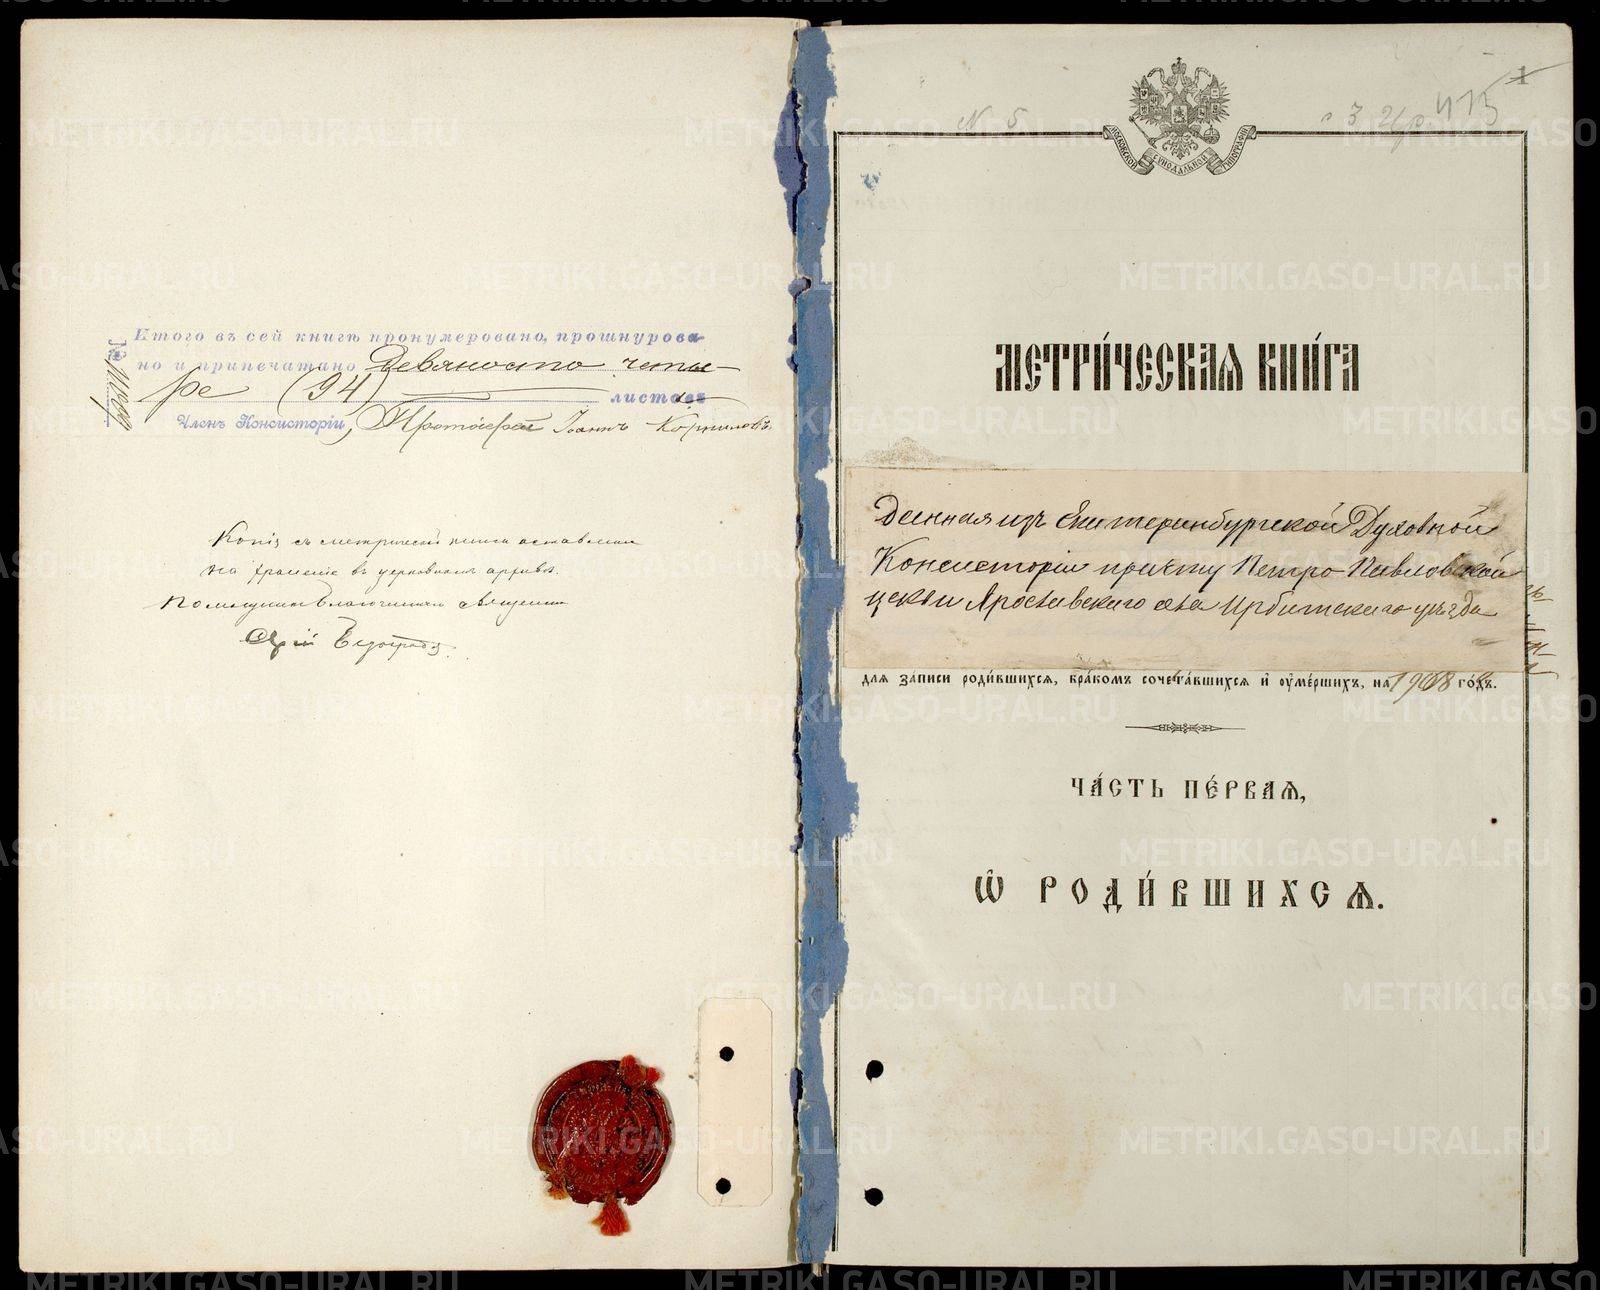 Итого въ сей книгѣ пронумеровано, прошнурова-
но и припечатано Девяносто четы-
ре (94) листовъ
Членъ Консисторіи, Протоіерей Іоаннъ Корниловъ
Копія съ метрической книги оставлена
на храненіе въ церковномъ архивѣ.
Помощникъ Благочиннаго священникъ
N 5
1
473
МОСКОВСКОЙ СѴНОДАЛЬНОЙ ТИПОГРАФІИ
МЕТРИ́ЧЕСКАѦ КНИ́ГА
Данная изъ Екатеринбургской Духовной
Консисторіи причту Петро-Павловской
церкви Ярославскаго села Ирбитскаго уѣзда
для за́писи роди́вшихсѧ, бра́комъ сочета́вшихсѧ и҆ ᲂу҆ме́ршихъ, на 1908 го́дъ.
ЧА́СТЬ ПЕ́РВАѦ,
Ѽ РОДИ́ВШИХСѦ.
METRIKI.GASO-URAL.RU